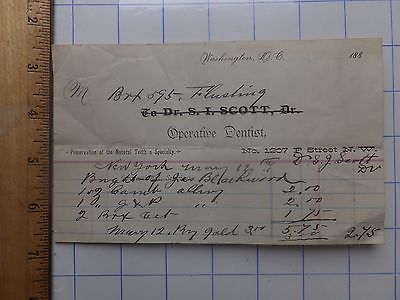 Washington, D.C. 188
M Box 595, Flushing
To Dr. S. I. SCOTT, Dr.
Operative Dentist,
Preservation of the Natural Teeth a Specialty.
No. 1207 F Street N. W.
New York May 12 Dr S. I. Scott
Bought of Jas Blackwood Dr
1 oz alloy 2.00
1 " G & P " 2.00
2 Box 1.75
May 12. By gold 3.00 5.75
2.75